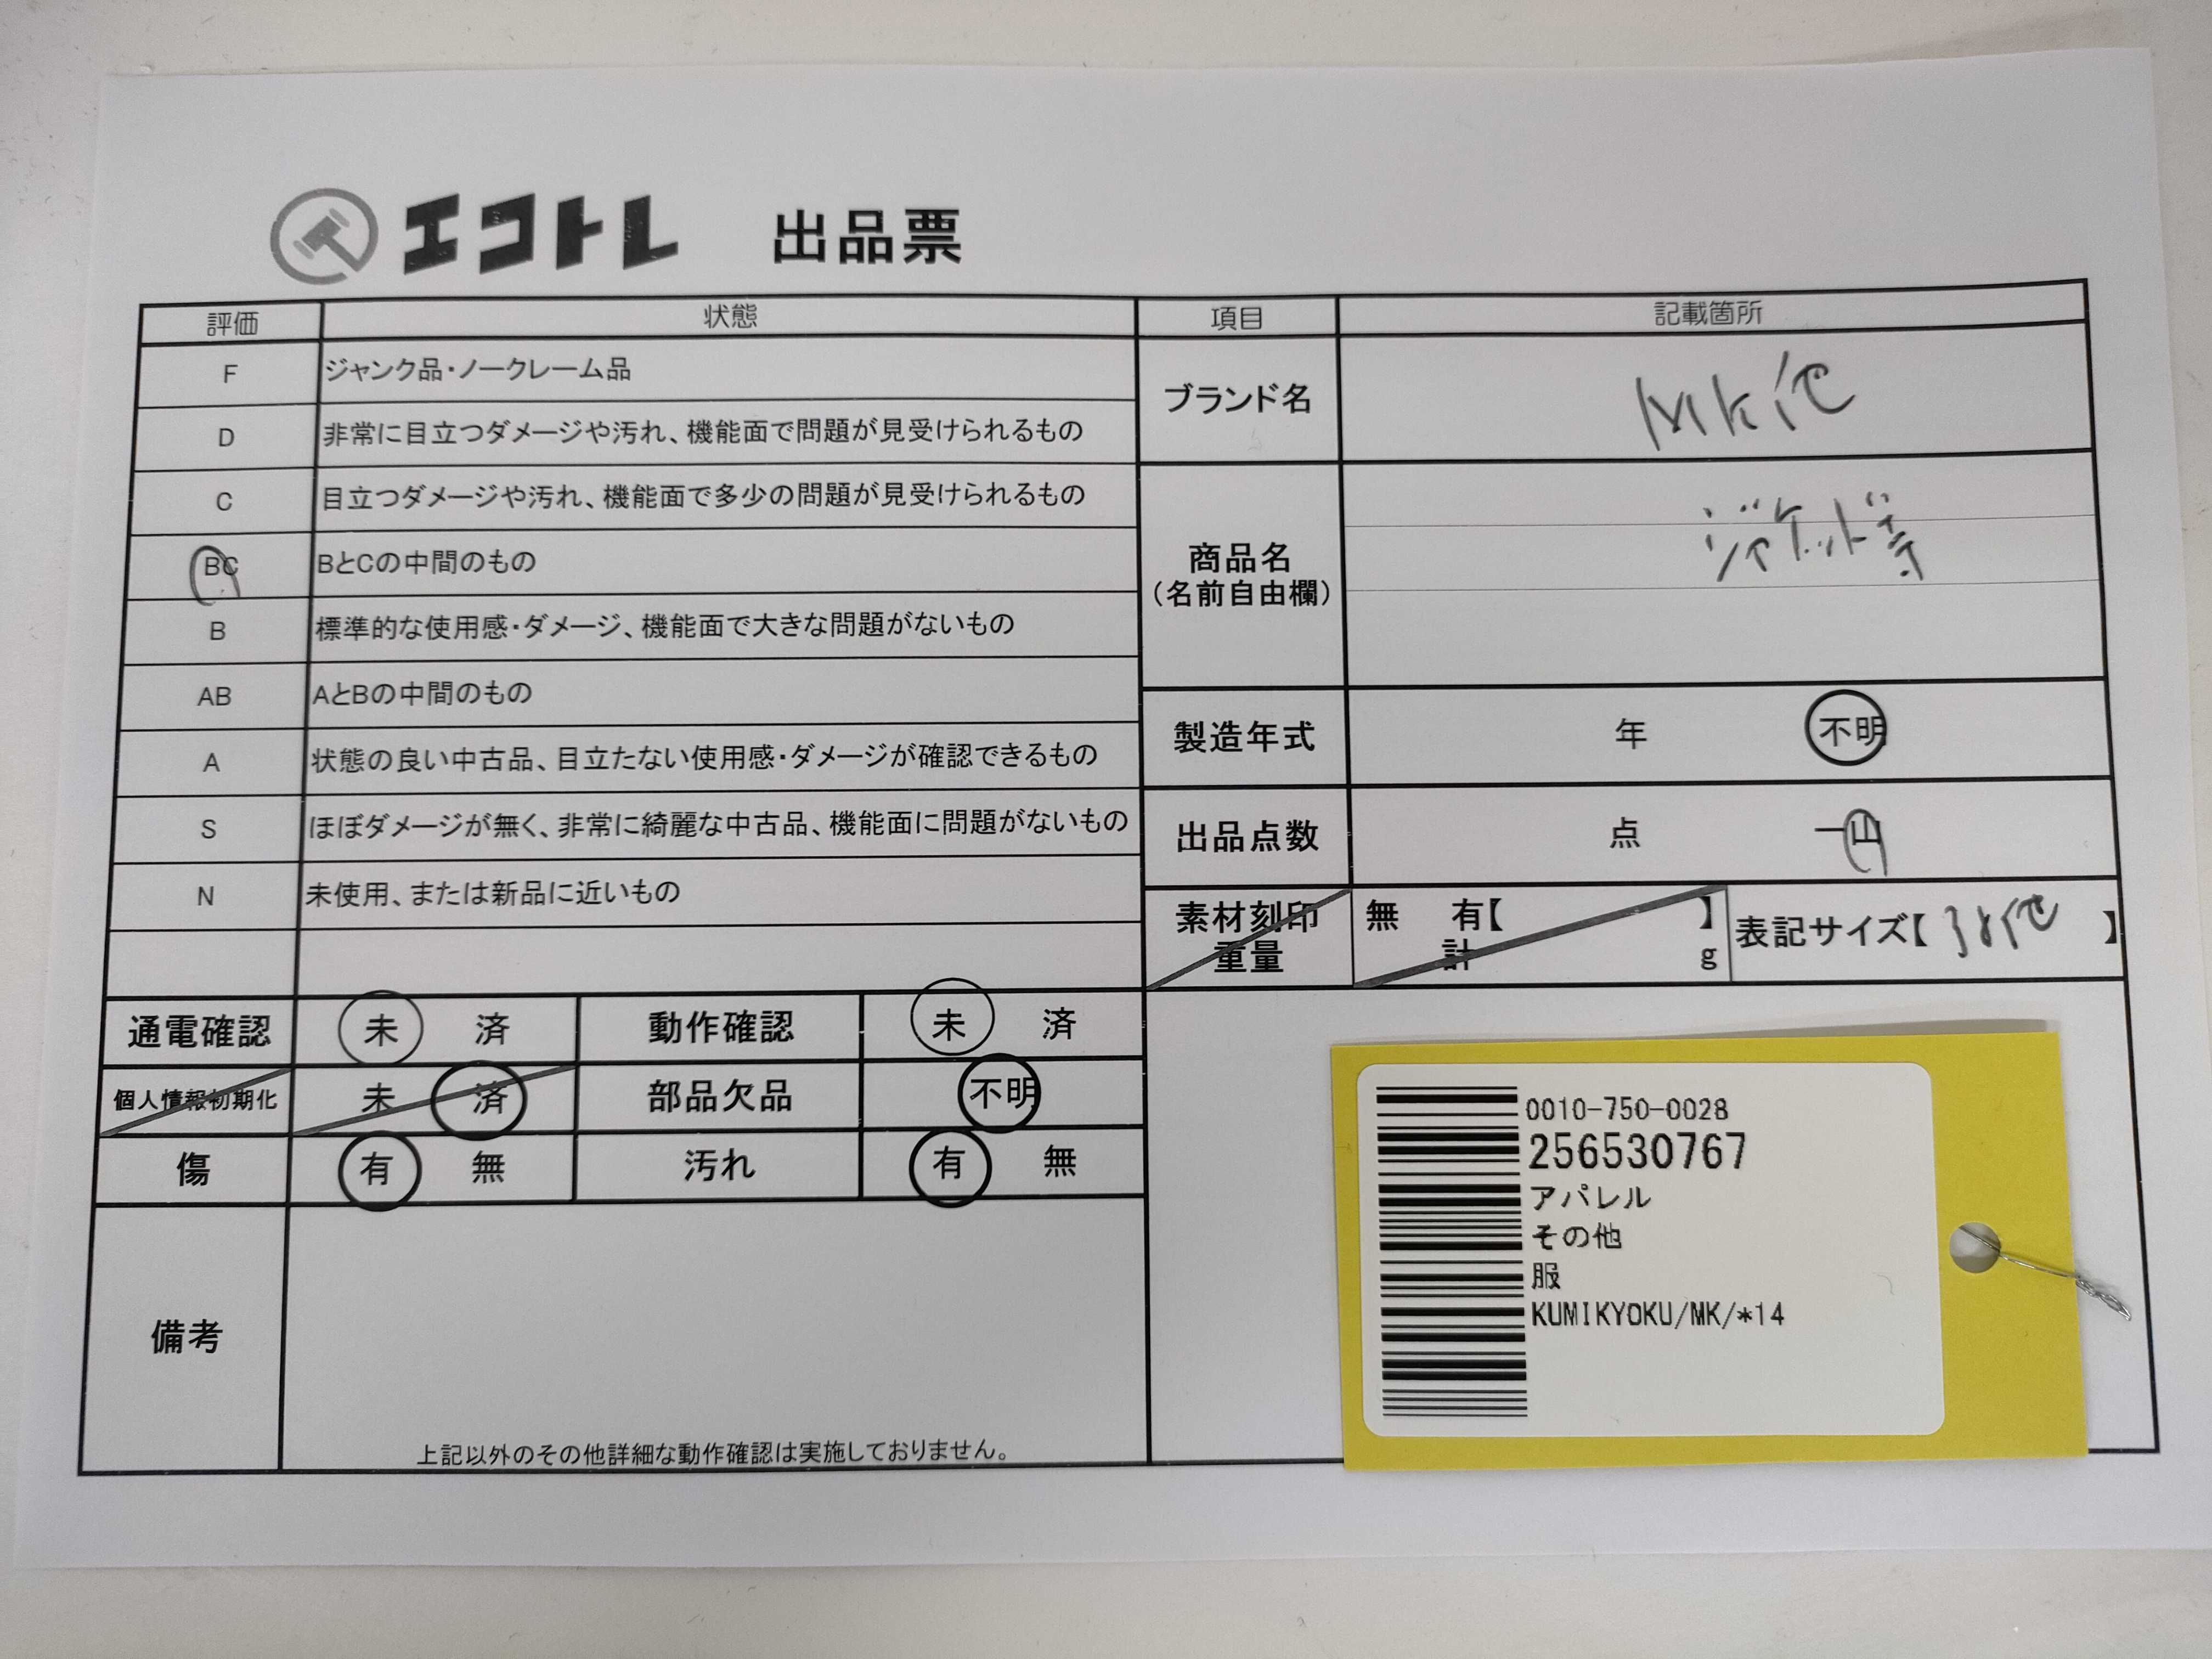 エコトレ 出品票
評価 状態 項目 記載箇所
F ジャンク品・ノークレーム品
D 非常に目立つダメージや汚れ、機能面で問題が見受けられるもの
C 目立つダメージや汚れ、機能面で多少の問題が見受けられるもの
BC BとCの中間のもの
B 標準的な使用感・ダメージ、機能面で大きな問題がないもの
AB AとBの中間のもの
A 状態の良い中古品、目立たない使用感・ダメージが確認できるもの
S ほぼダメージが無く、非常に綺麗な中古品、機能面に問題がないもの
N 未使用、または新品に近いもの
ブランド名 MK他
商品名 ジャケット等
(名前自由欄)
製造年式 年 不明
出品点数 点 一山
素材刻印 無 有【 】
重量 計 g
表記サイズ【38他】
通電確認 未 済 動作確認 未 済
個人情報初期化 未 済 部品欠品 不明
傷 有 無 汚れ 有 無
備考
上記以外のその他詳細な動作確認は実施しておりません。
0010-750-0028
256530767
アパレル
その他
服
KUMIKYOKU/MK/*14